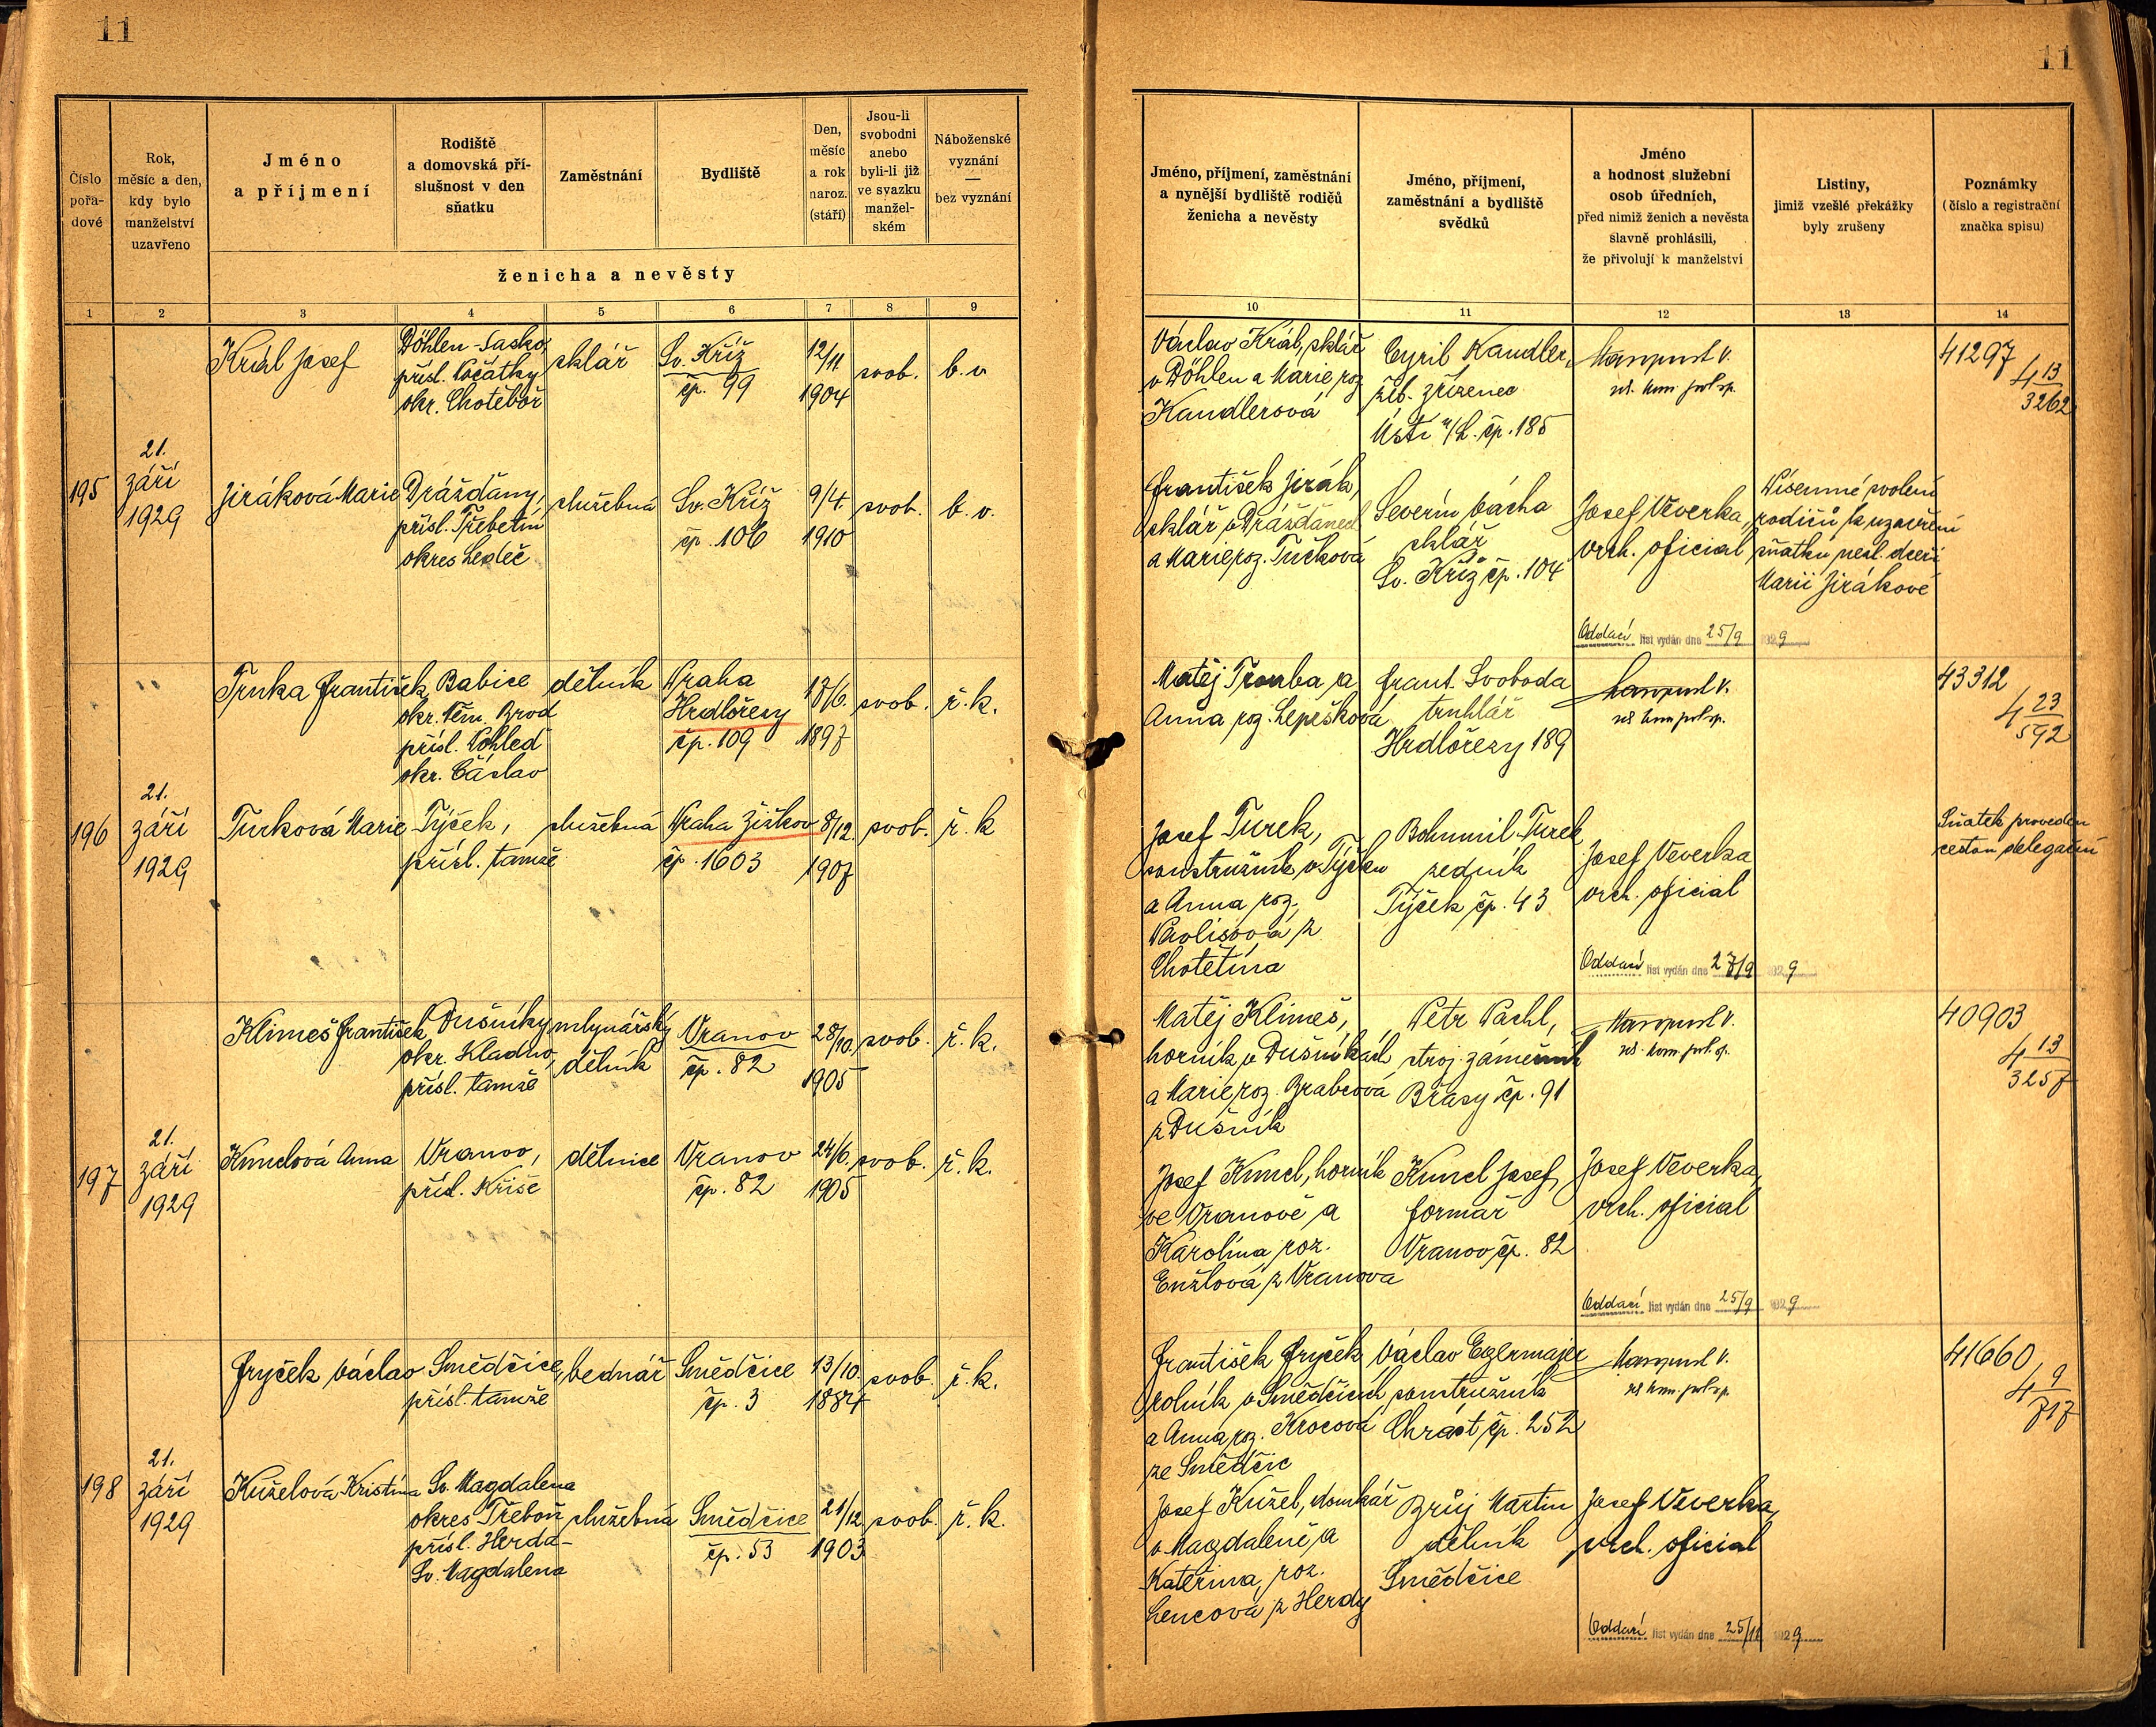 11
11
Číslo pořadové
Rok, měsíc a den, kdy bylo manželství uzavřeno
Jméno a příjmení
Rodiště a domovská příslušnost v den sňatku
Zaměstnání
Bydliště
Den, měsíc a rok naroz. (stáří)
Jsou-li svobodni anebo byli-li již ve svazku manželském
Náboženské vyznání — bez vyznání
ženicha a nevěsty
Jméno, příjmení, zaměstnání a nynější bydliště rodičů ženicha a nevěsty
Jméno, příjmení, zaměstnání a bydliště svědků
Jméno a hodnost služební osob úředních, před nimiž ženich a nevěsta slavně prohlásili, že přivolují k manželství
Listiny, jimiž vzešlé překážky byly zrušeny
Poznámky (číslo a registrační značka spisu)
1 2 3 4 5 6 7 8 9 10 11 12 13 14
195
21.
září
1929
Král Josef
Döhlen-Sasko,
přísl. Počátky
okr. Chotěboř
sklář
Sv. Kříž
čp. 99
12/11
1904
svob.
b. v.
Václav Král, sklář
v Döhlen a Marie roz.
Kandlerová
Cyril Kandler,
žel. zřízenec
Ústí n/L. čp. 185
41297
4 13/3262
Jiráková Marie
Drážďany,
přísl. Třebětín
okres Ledeč
služebná
Sv. Kříž
čp. 106
9/4
1910
svob.
b. v.
František Jirák,
sklář v Drážďanech
a Marie roz. Tučková
Severin Vácha
sklář
Sv. Kříž čp. 104
Josef Veverka,
vrch. oficial
Písemné svolení
rodičů k uzavření
sňatku nezl. dceři
Marii Jirákové
Oddací list vydán dne 25/9 1929
196
21.
září
1929
Trnka František
Babice
okr. Něm. Brod
přísl. Pohled
okr. Čáslav
dělník
Praha
Hrdlořezy
čp. 109
17/6.
1897
svob.
ř. k.
Matěj Trouba a
Anna roz. Lepešková
Frant. Svoboda
truhlář
Hrdlořezy 189
43312
4 23/592
Turková Marie
Týček,
přísl. tamže
služebná
Praha Žižkov
čp. 1603
8/12.
1907
svob.
ř. k
Josef Turek,
soustružník v Týčku
a Anna roz.
z
Chotětína
Bohumil Turek
zedník
Týček čp. 43
Josef Veverka
vrch. oficial
Sňatek proveden
cestou delegační
Oddací list vydán dne 27/9 1929
197
21.
září
1929
Klimeš František
Dušníky
okr. Kladno,
přísl. tamže
mlynářský
dělník
Vranov
čp. 82
28/10.
1905
svob.
ř. k.
Matěj Klimeš,
horník v Dušníkách
a Marie roz. Brabcová
z Dušník
Petr Pachl,
stroj. zámečník
Břasy čp. 91
40903
4 13/3257
Kunclová Anna
Vranov,
přísl. Kříše
dělnice
Vranov
čp. 82
24/6.
1905
svob.
ř. k.
Josef Kuncl, horník
ve Vranově a
Karolína roz.
Enžlová z Vranova
Kuncl Josef,
formař
Vranov čp. 82
Josef Veverka,
vrch. oficial
Oddací list vydán dne 25/9 1929
198
21.
září
1929
Fryček Václav
Smědčice,
přísl. tamže
bednář
Smědčice
čp. 3
13/10.
1884
svob.
ř. k.
František Fryček
rolník v Smědčicích
a Anna roz. Krocová
ze Smědčic
Václav Egermajer
soustružník
Chrást čp. 252
41660
4 9/717
Kuželová Kristina
Sv. Magdalena
okres Třeboň
přísl. Herda-
Sv. Magdalena
služebná
Smědčice
čp. 53
21/12
1903
svob.
ř. k.
Josef Kužel, domkář
v Magdaleně a
Kateřina, roz.
Lencová z Herdy
Brůj Martin
dělník
Smědčice
Josef Veverka,
vrch. oficial
Oddací list vydán dne 25/11 1929